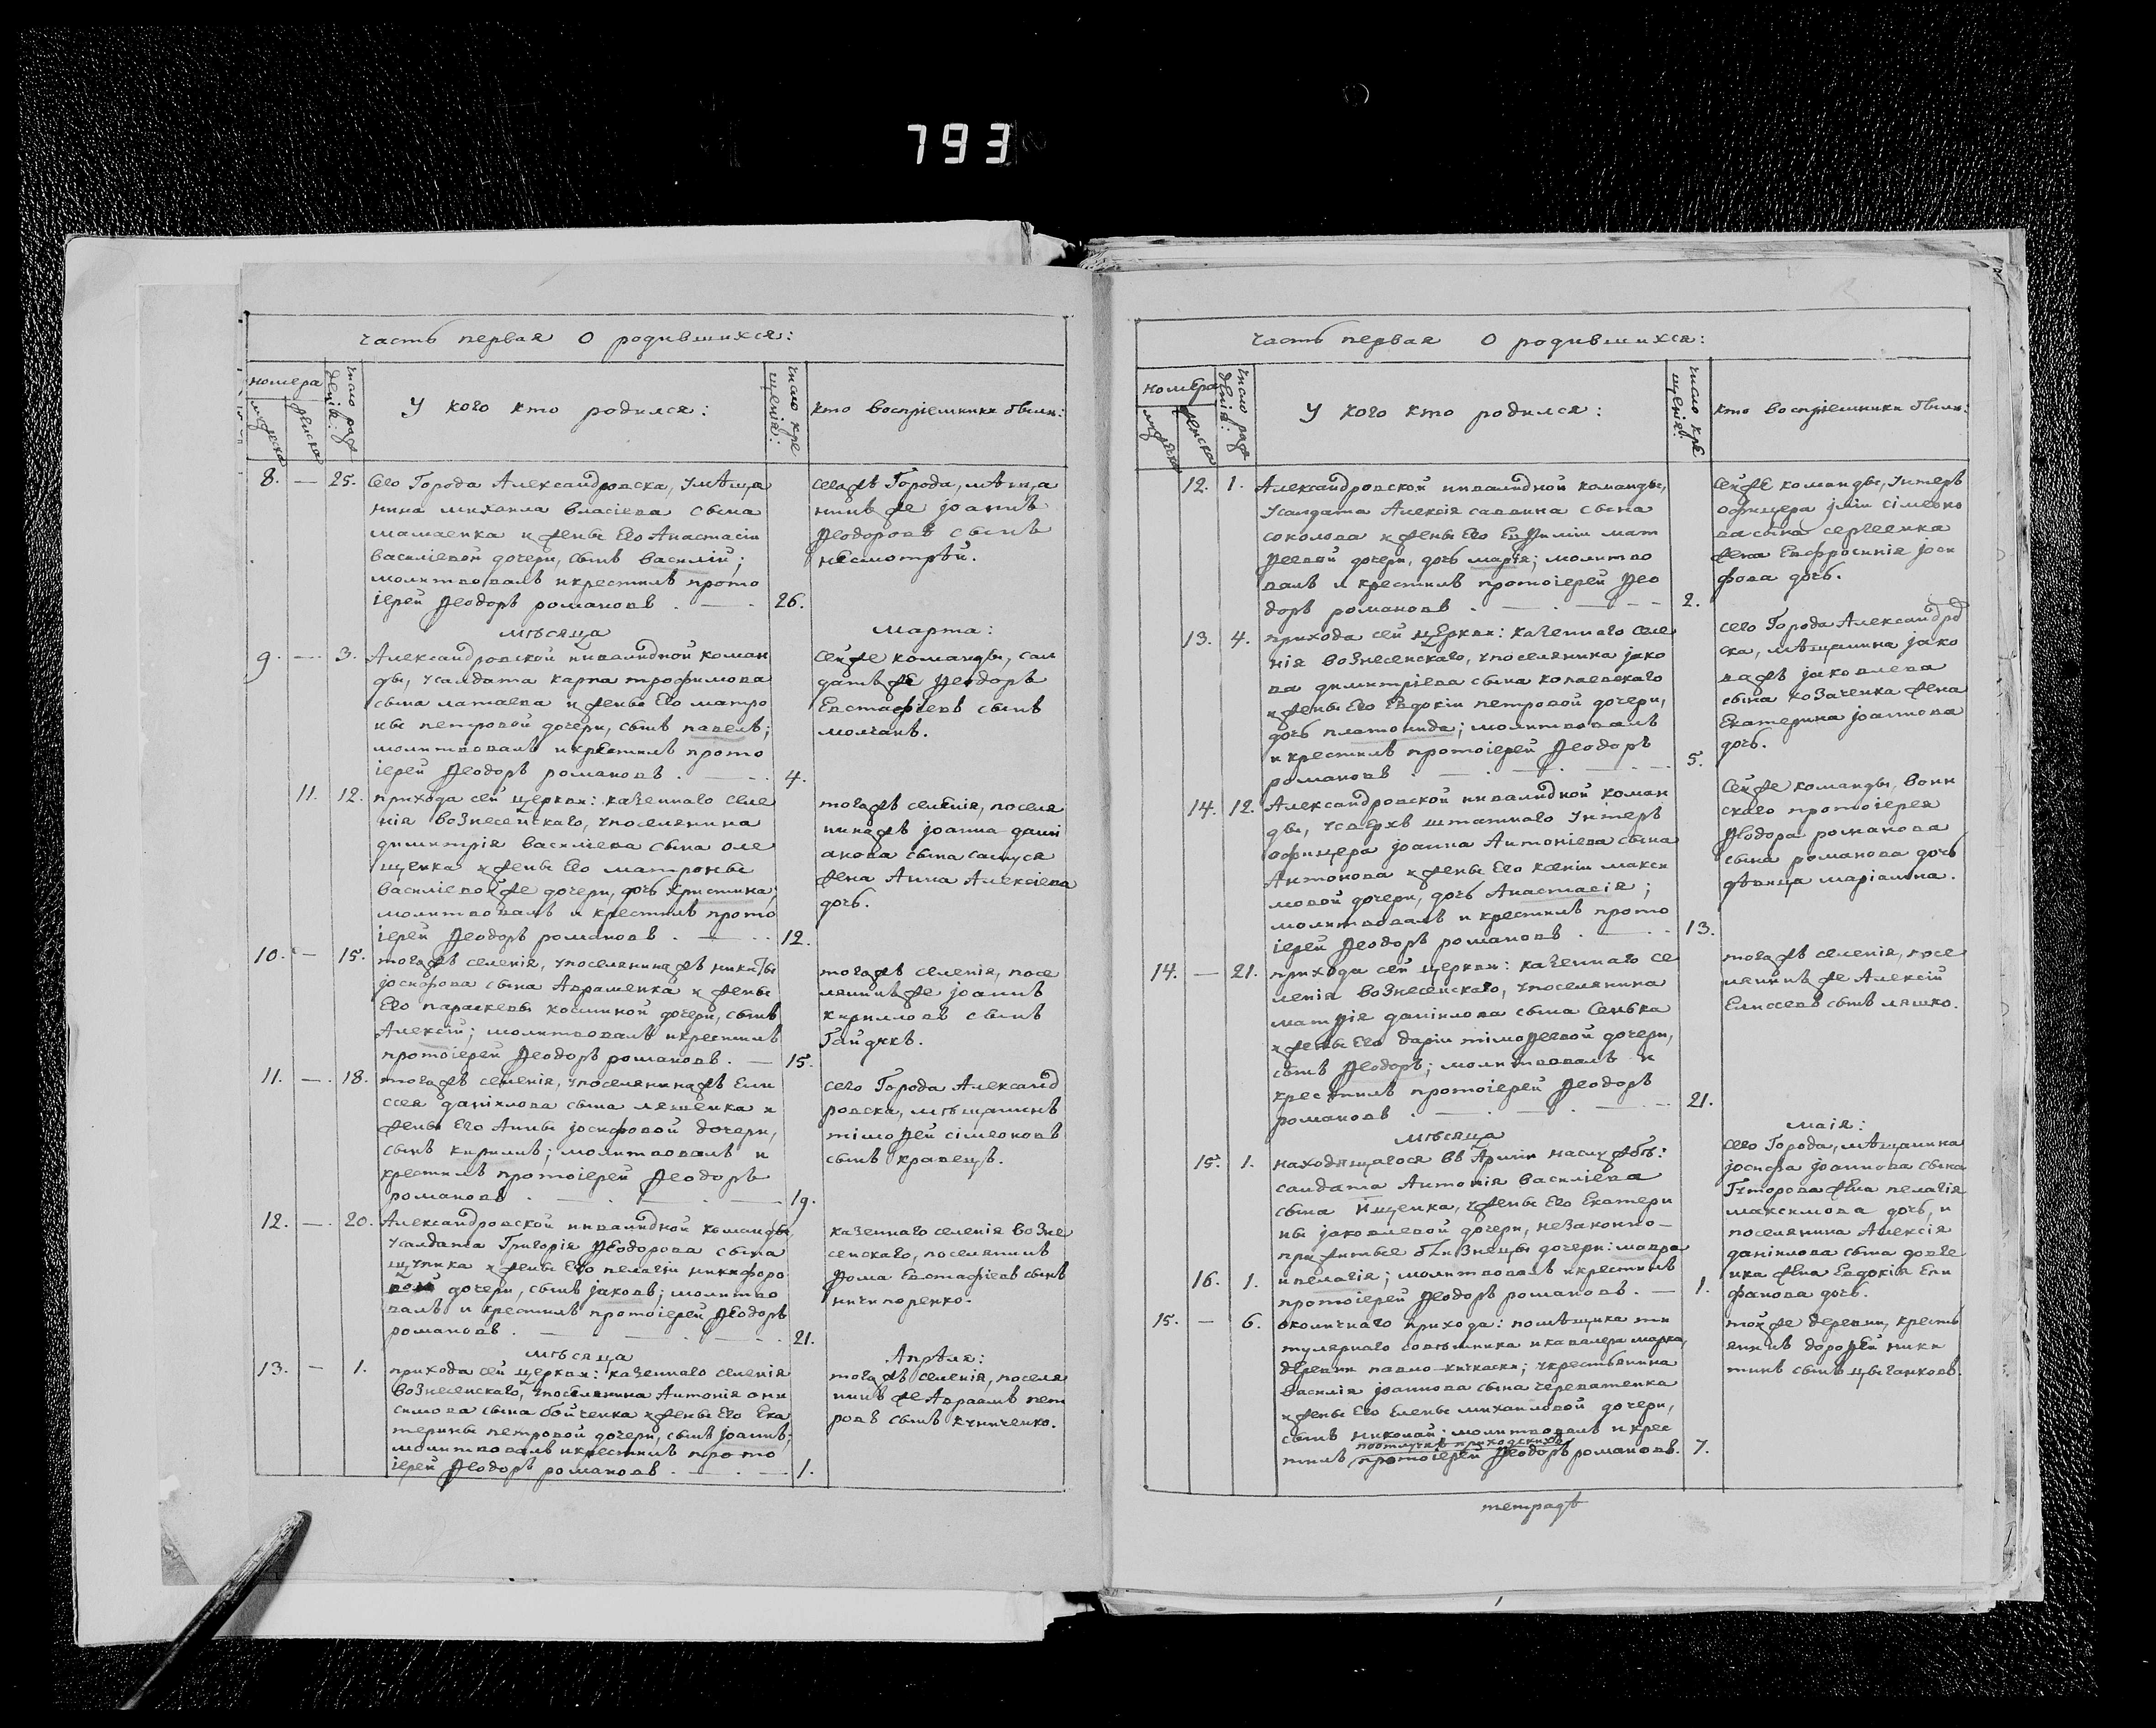 793
часть первая О родившихся:
номера
мужеска
женска
число рож
денія:
У кого кто родился:
число кре
щенія:
кто воспріемники были:
8. — 25. Сего Города Александровска, умѣща
нина михаила власіева сына
мамаенка и жены Его Анастасіи
василіевой дочери, сынъ василій;
молитвовалъ и крестилъ прото
іерей Ѳеодоръ романовъ . — . 26.
сегожъ Города, мѣща
нинъ же іоаннъ
Ѳеодоровъ сынъ
несмотрѣй.
мѣсяца марта:
9. — 3. Александровской инвалидной коман
ды, усалдата карпа трофимова
сына матаева и жены Его матро
ны петровой дочери, сынъ павелъ;
молитвовалъ и крестилъ прото
іерей Ѳеодоръ романовъ . — . 4.
Сейже команды, сал
датъ же Ѳеодоръ
Евстафіевъ сынъ
молчанъ.
11. 12. прихода сей церкви: казеннаго селе
нія вознесенскаго, упоселянина
димитрія василіева сына оле
щенка и жены Его матроны
василіевойже дочери, дочь христина;
молитвовалъ и крестилъ прото
іерей Ѳеодоръ романовъ . — . . 12.
тогожъ селенія, поселя
нинажъ іоанна дамі
анова сына самуся
жена Анна Алексіева
дочь.
10. — 15. тогожъ селенія, упоселянинажъ никиты
іосифова сына Авраменка и жены
Его параскевы косминой дочери, сынъ
Алексій; молитвовалъ и крестилъ
протоіерей Ѳеодоръ романовъ. — 15.
тогожъ селенія, посе
лянинъ же іоаннъ
кирилловъ сынъ
Гайдукъ.
11. — 18. тогожъ селенія, упоселянинажъ Ели
ссея даніилова сына ляшенка и
жены Его Анны іосифовой дочери,
сынъ кирилъ; молитвовалъ и
крестилъ протоіерей Ѳеодоръ
романовъ . — . — . — 19.
сего Города Александ
ровска, мѣщанинъ
тімоѳей сімеоновъ
сынъ кравецъ.
12. — 20. Александровской инвалидной команды,
усалдата Григорія Ѳеодорова сына
щупика и жены Его пелагіи никифоро
вой дочери, сынъ іаковъ; молитво
валъ и крестилъ протоіерей Ѳеодоръ
романовъ . — — . — . 21.
казеннаго селенія возне
сенскаго, поселянинъ
Ѳома Евстафіевъ сынъ
ничипоренко.
мѣсяца Апрѣля:
13. — 1. прихода сей церкви: казеннаго селенія
вознесенскаго, упоселянина Антонія они
симова сына бойченка и жены Его Ека
терины петровой дочери, сынъ іоаннъ;
молитвовалъ и крестилъ прото
іерей Ѳеодоръ романовъ . — . — 1.
тогожъ селенія, поселя
нинъ же Авраамъ пет
ровъ сынъ кучниченко.
часть первая О родившихся:
номера
мужеска
женска
число рож
денія:
У кого кто родился:
число кре
щенія:
кто воспріемники были:
12. 1. Александровской инвалидной команды,
усалдата Алексія саввина сына
соколова и жены Его Евѳиміи мат
ѳеевой дочери, дочь марія; молитво
валъ и крестилъ протоіерей Ѳео
доръ романовъ . — . — — 2.
Сейже команды, унтеръ
офицера іліи сімеоно
ва сына сергеенка
жена Евфросинія іоси
фова дочь.
13. 4. прихода сей церкви: казеннаго селе
нія вознесенскаго, упоселянина іако
ва димитріева сына копаевскаго
и жены Его Евдокіи петровой дочери,
дочь платонида; молитвовалъ
и крестилъ протоіерей Ѳеодоръ
романовъ . — . — . — . — 5.
сего Города Александров
ска, мѣщанина іако
важъ іаковлева
сына козаченка жена
Екатерина іоаннова
дочь.
14. 12. Александровской инвалидной коман
ды, усверхъ штатнаго унтеръ
офицера іоанна Антоніева сына
Антонова и жены Его ксеніи макси
мовой дочери, дочь Анастасія;
молитвовалъ и крестилъ прото
іерей Ѳеодоръ романовъ . — . 13.
Сейже команды, воин
скаго протоіерея
Ѳеодора романова
сына романова дочь
дѣвица маріамна.
14. — 21. прихода сей церкви: казеннаго се
ленія вознесенскаго, упоселянина
матѳія даніилова сына Сенька
и жены Его даріи тімоѳеевой дочери,
сынъ Ѳеодоръ; молитвовалъ и
крестилъ протоіерей Ѳеодоръ
романовъ . — . — . — 21.
тогожъ селенія, посе
лянинъ же Алексій
Елисеевъ сынъ ляшко.
мѣсяца маія:
15. 1. находящагося въ Арміи наслужбѣ:
салдата Антонія василіева
сына Ищенка, ужены Его Екатери
ны іаковлевой дочери, незаконно-
прижитые близнецы дочери: мавра
16. 1. и пелагія; молитвовалъ и крестилъ
протоіерей Ѳеодоръ романовъ. — 1.
сего Города, мѣщанина
іосифа іоаннова сына
жена пелагія
максимова дочь, и
поселянина Алексія
даніилова сына довге
нка жена Евдокія Епи
фанова дочь.
15. — 6. околичнаго прихода: помѣщика ти
тулярнаго совѣтника и кавалера марка,
деревни павло-кичкаски; укрестьянина
василія іоаннова сына череватенка
и жены Его Елены михаиловой дочери,
сынъ николай; молитвовалъ и крес
тилъ протоіерей Ѳеодоръ романовъ. 7.
тойже деревни, кресть
янинъ дороѳей ники
тинъ сынъ цыганковъ.
тетрадь